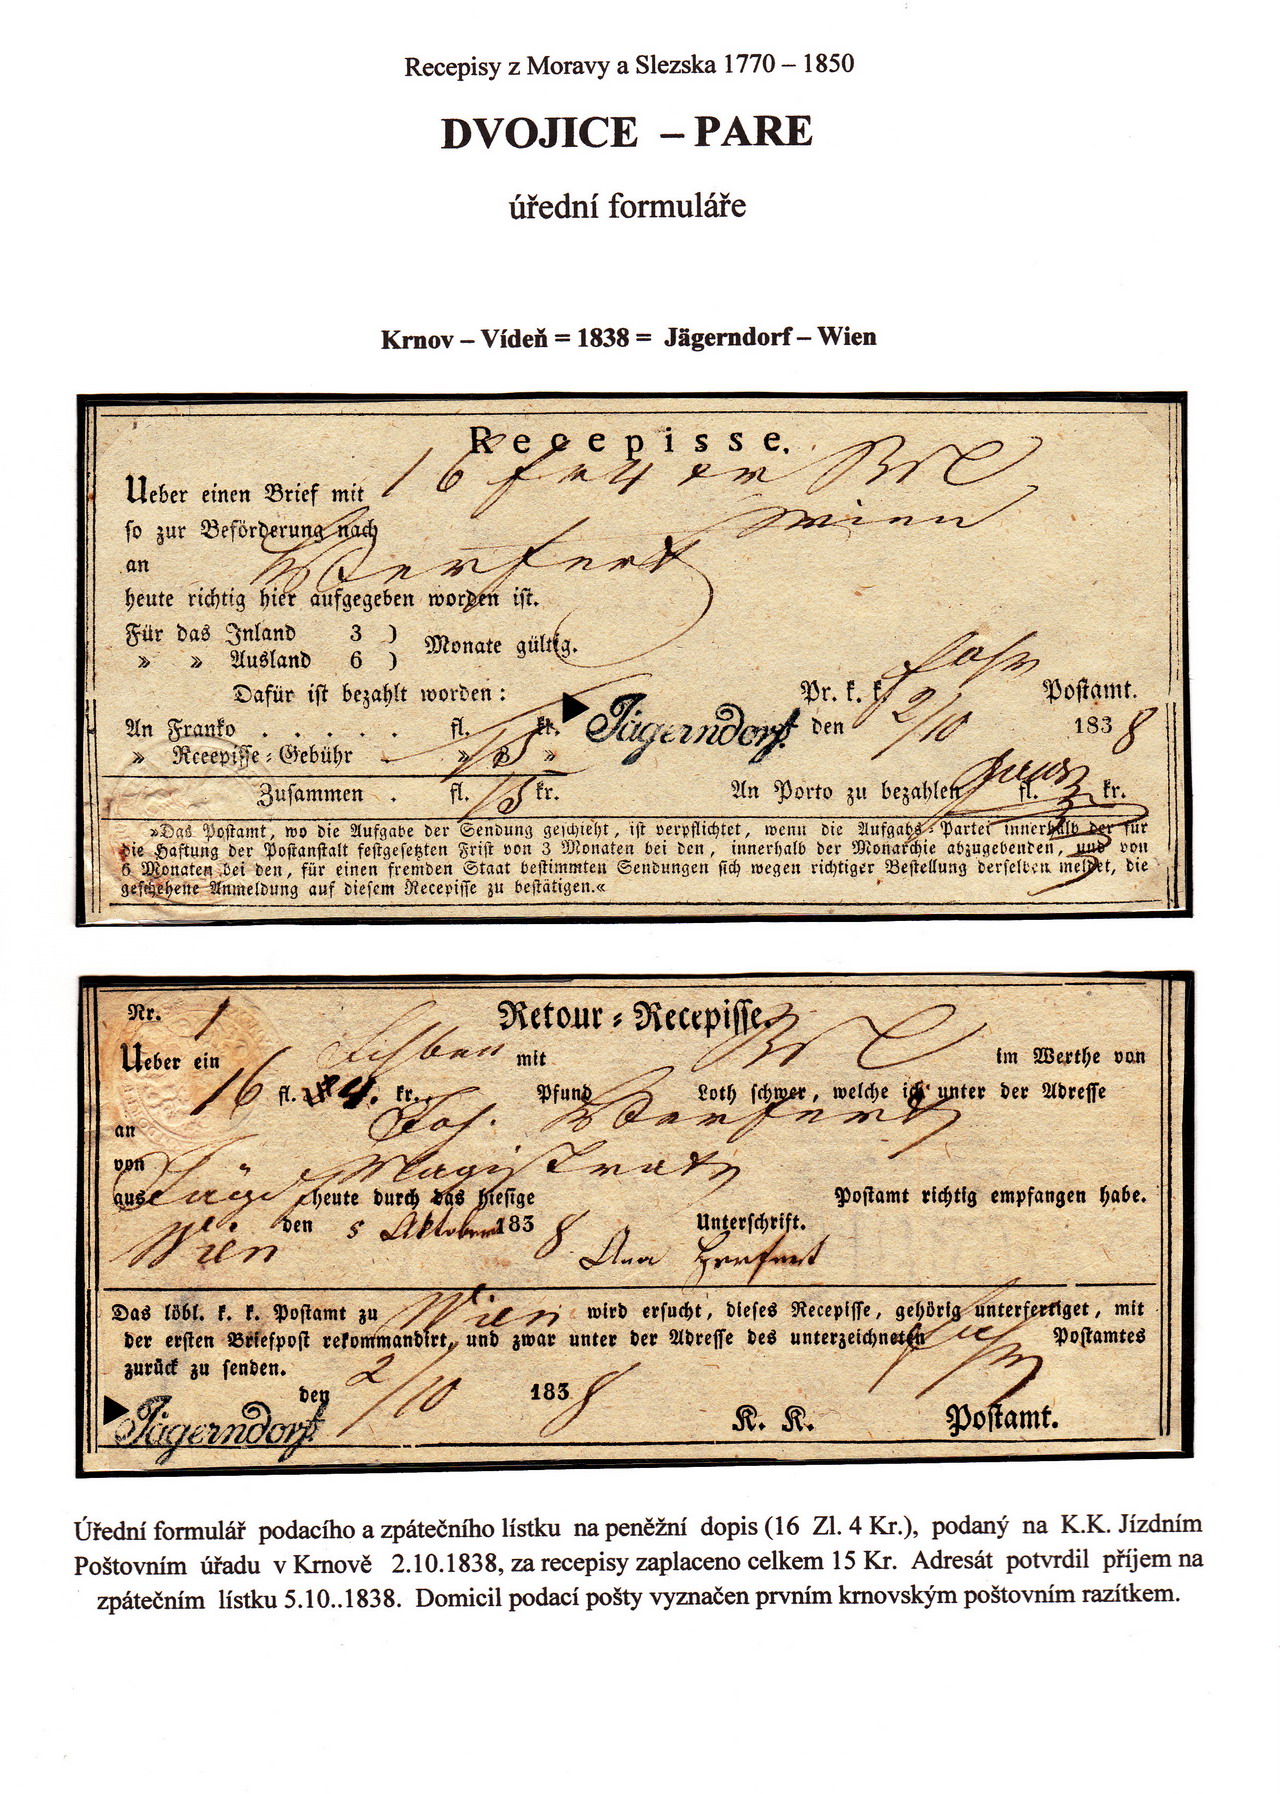 Recepisy z Moravy a Slezska 1770 – 1850
DVOJICE – PARE
úřední formuláře
Krnov – Vídeň = 1838 = Jägerndorf – Wien
Recepisse.
Ueber einen Brief mit 16 f 4 xr
so zur Beförderung nach Wien
an
heute richtig hier aufgegeben worden ist.
Für das Inland 3 ) Monate gültig.
» » Ausland 6 )
Dafür ist bezahlt worden: Pr. k. k. Postamt.
An Franko . . . . . fl. kr. Jägerndorf. den 2/10 1838
» Receepisse-Gebühr . » 3 »
Zusammen . fl. 15 kr. An Porto zu bezahlen fl. kr.
»Das Postamt, wo die Aufgabe der Sendung geschieht, ist verpflichtet, wenn die Aufgabs-Partei innerhalb der für
die Haftung der Postanstalt festgesetzten Frist von 3 Monaten bei den, innerhalb der Monarchie abzugebenden, und von
6 Monaten bei den, für einen fremden Staat bestimmten Sendungen sich wegen richtiger Bestellung derselben meldet, die
geschehene Anmeldung auf diesem Recepisse zu bestätigen.«
Nr. 1 Retour-Recepisse.
Ueber ein mit im Werthe von
16 fl. 4. kr. Pfund Loth schwer, welche ich unter der Adresse
an Joh.
von Magistrats
aus heute durch das hiesige Postamt richtig empfangen habe.
Wien den 5 Oktober 1838 Unterschrift.
Das löbl. k. k. Postamt zu Wien wird ersucht, dieses Recepisse, gehörig unterfertiget, mit
der ersten Briefpost rekommandirt, und zwar unter der Adresse des unterzeichneten Postamtes
zurück zu senden.
den 2/10 1838
Jägerndorf. K. K. Postamt.
Úřední formulář podacího a zpátečního lístku na peněžní dopis (16 Zl. 4 Kr.), podaný na K.K. Jízdním
Poštovním úřadu v Krnově 2.10.1838, za recepisy zaplaceno celkem 15 Kr. Adresát potvrdil příjem na
zpátečním lístku 5.10..1838. Domicil podací pošty vyznačen prvním krnovským poštovním razítkem.